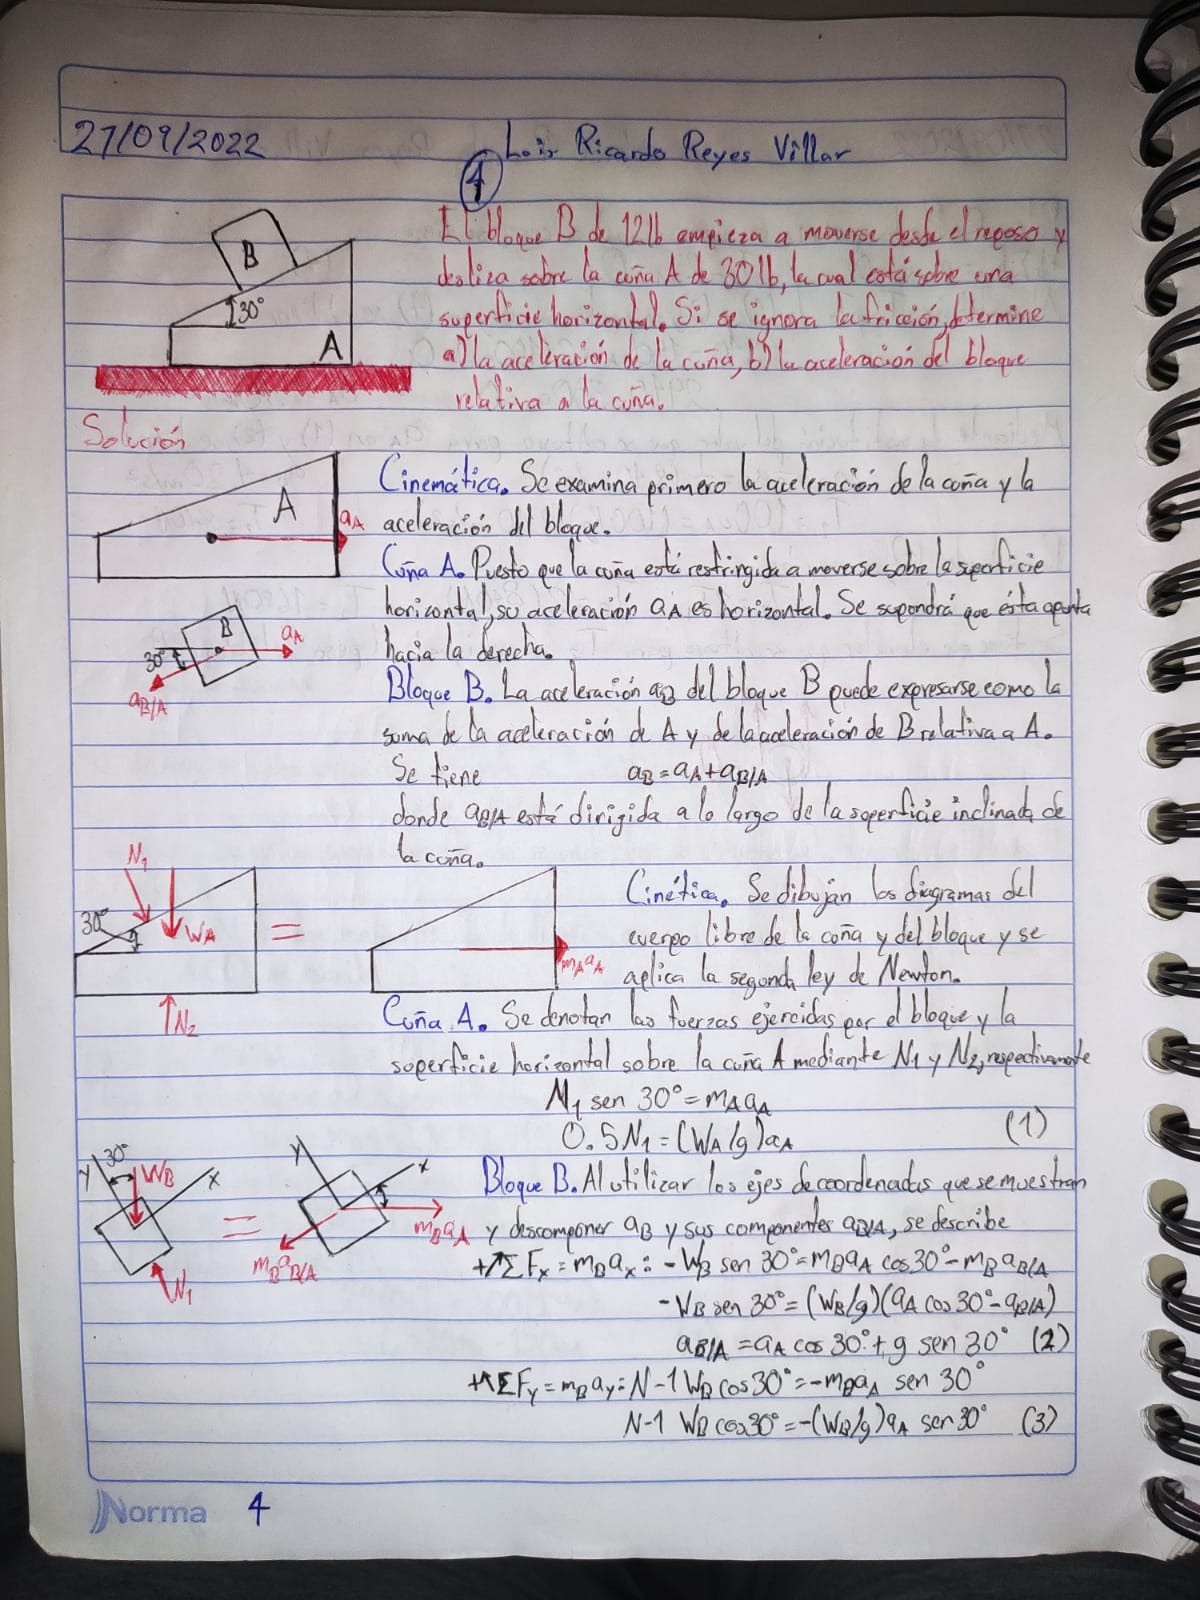 27/09/2022
Luis Ricardo Reyes Villar
4
El bloque B de 12lb empieza a moverse desde el reposo y
desliza sobre la cuña A de 30lb, la cual está sobre una
superficie horizontal. Si se ignora la fricción, determine
a) la aceleración de la cuña, b) la aceleración del bloque
relativa a la cuña.
B
30°
A
Solución
A
aA
Cinemática. Se examina primero la aceleración de la cuña y la
aceleración del bloque.
Cuña A. Puesto que la cuña está restringida a moverse sobre la superficie
horizontal, su aceleración aA es horizontal. Se supondrá que ésta apunta
hacia la derecha.
B
aA
30°
aB/A
Bloque B. La aceleración aB del bloque B puede expresarse como la
suma de la aceleración de A y de la aceleración de B relativa a A.
Se tiene aB=aA+aB/A
donde aB/A está dirigida a lo largo de la superficie inclinada de
la cuña.
N1
30°
WA
=
mAaA
N2
Cinética. Se dibujan los diagramas del
cuerpo libre de la cuña y del bloque y se
aplica la segunda ley de Newton.
Cuña A. Se denotan las fuerzas ejercidas por el bloque y la
superficie horizontal sobre la cuña A mediante N1 y N2, respectivamente
N1 sen 30°=mAaA
0.5N1=(WA/g)aA (1)
y 30° WB x
=
y x
mBaA
mBaB/A
N1
Bloque B. Al utilizar los ejes de coordenadas que se muestran
y descomponer aB y sus componentes aB/A, se describe
+↗ΣFx=mBax: -WB sen 30°=mBaA cos30°-mBaB/A
-WB sen 30°=(WB/g)(aA cos30°-aB/A)
aB/A=aA cos 30°+g sen 30° (2)
+↖ΣFy=mBay: N-1 WB cos30°=-mBaA sen 30°
N-1 WB cos30°=-(WB/g)aA sen30° (3)
Norma 4